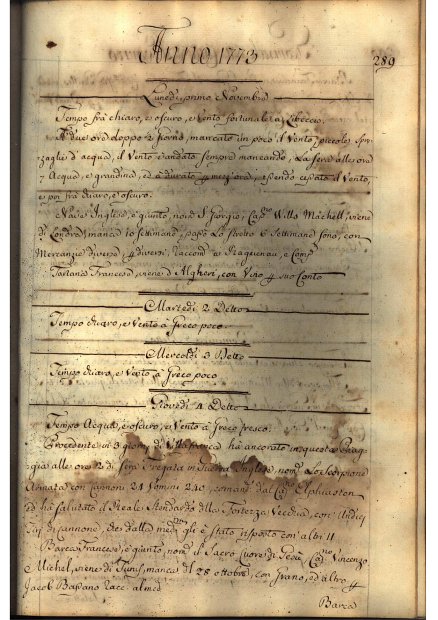 Anno 1773
289
Lunedì, primo Novembre
Tempo frà chiaro, e oscuro, e Vento fortunale a Libeccio,
A due ore doppo 2 giorno, mancato un poco il Vento, piccole spru
zaglie d'acqua, il Vento è andato sempre mancando, La sera alle ore
7 Acqua, e grandina, ed à durato p mezz'ora, essendo cessato il Vento,
e poi frà chiaro, e oscuro.
Nave Inglese, è giunto, nom S. Giorgio; Capno Willm Machell, viene
di Londra, manca 10 Settimane, passò Lo stretto 6 Settimane sono, con
Mercanzie diverse, p diversi, Raccond a Raguenau, e Comp
Tartana Francese, viene d'Algheri, con Vino p suo Conto
Martedì 2 Detto
Tempo chiaro, e Vento à Greco poco
Mercoldì 3 Detto
Tempo chiaro, e Vento à Greco poco
Giovedì 4 Detto
Tempo Acqua, e oscuro, e Vento à Greco fresco.
Procedente in 3 giorni di Villafranca hà ancorato in questa Piag
gia alle ore 2 di sera Fregata in Guerra Inglese, nom Lo Scorpione
Armata con Cannoni 24 Uomini 240, comand. dal Capno Elphinston
ed hà salutato il Reale Stendardo della Fortezza Vecchia, con Undici
Tiri di Cannone, che dalla medma gli è stato risposto con altri 11
Barca Francese, è giunto, nom il Sacro Cuore di Gesù, Capno Vincenzo
Michel, viene di Tunis, manca dl 28 ottobre, con grano, ed altro p
Jacob Bassano racc. almed
Barca